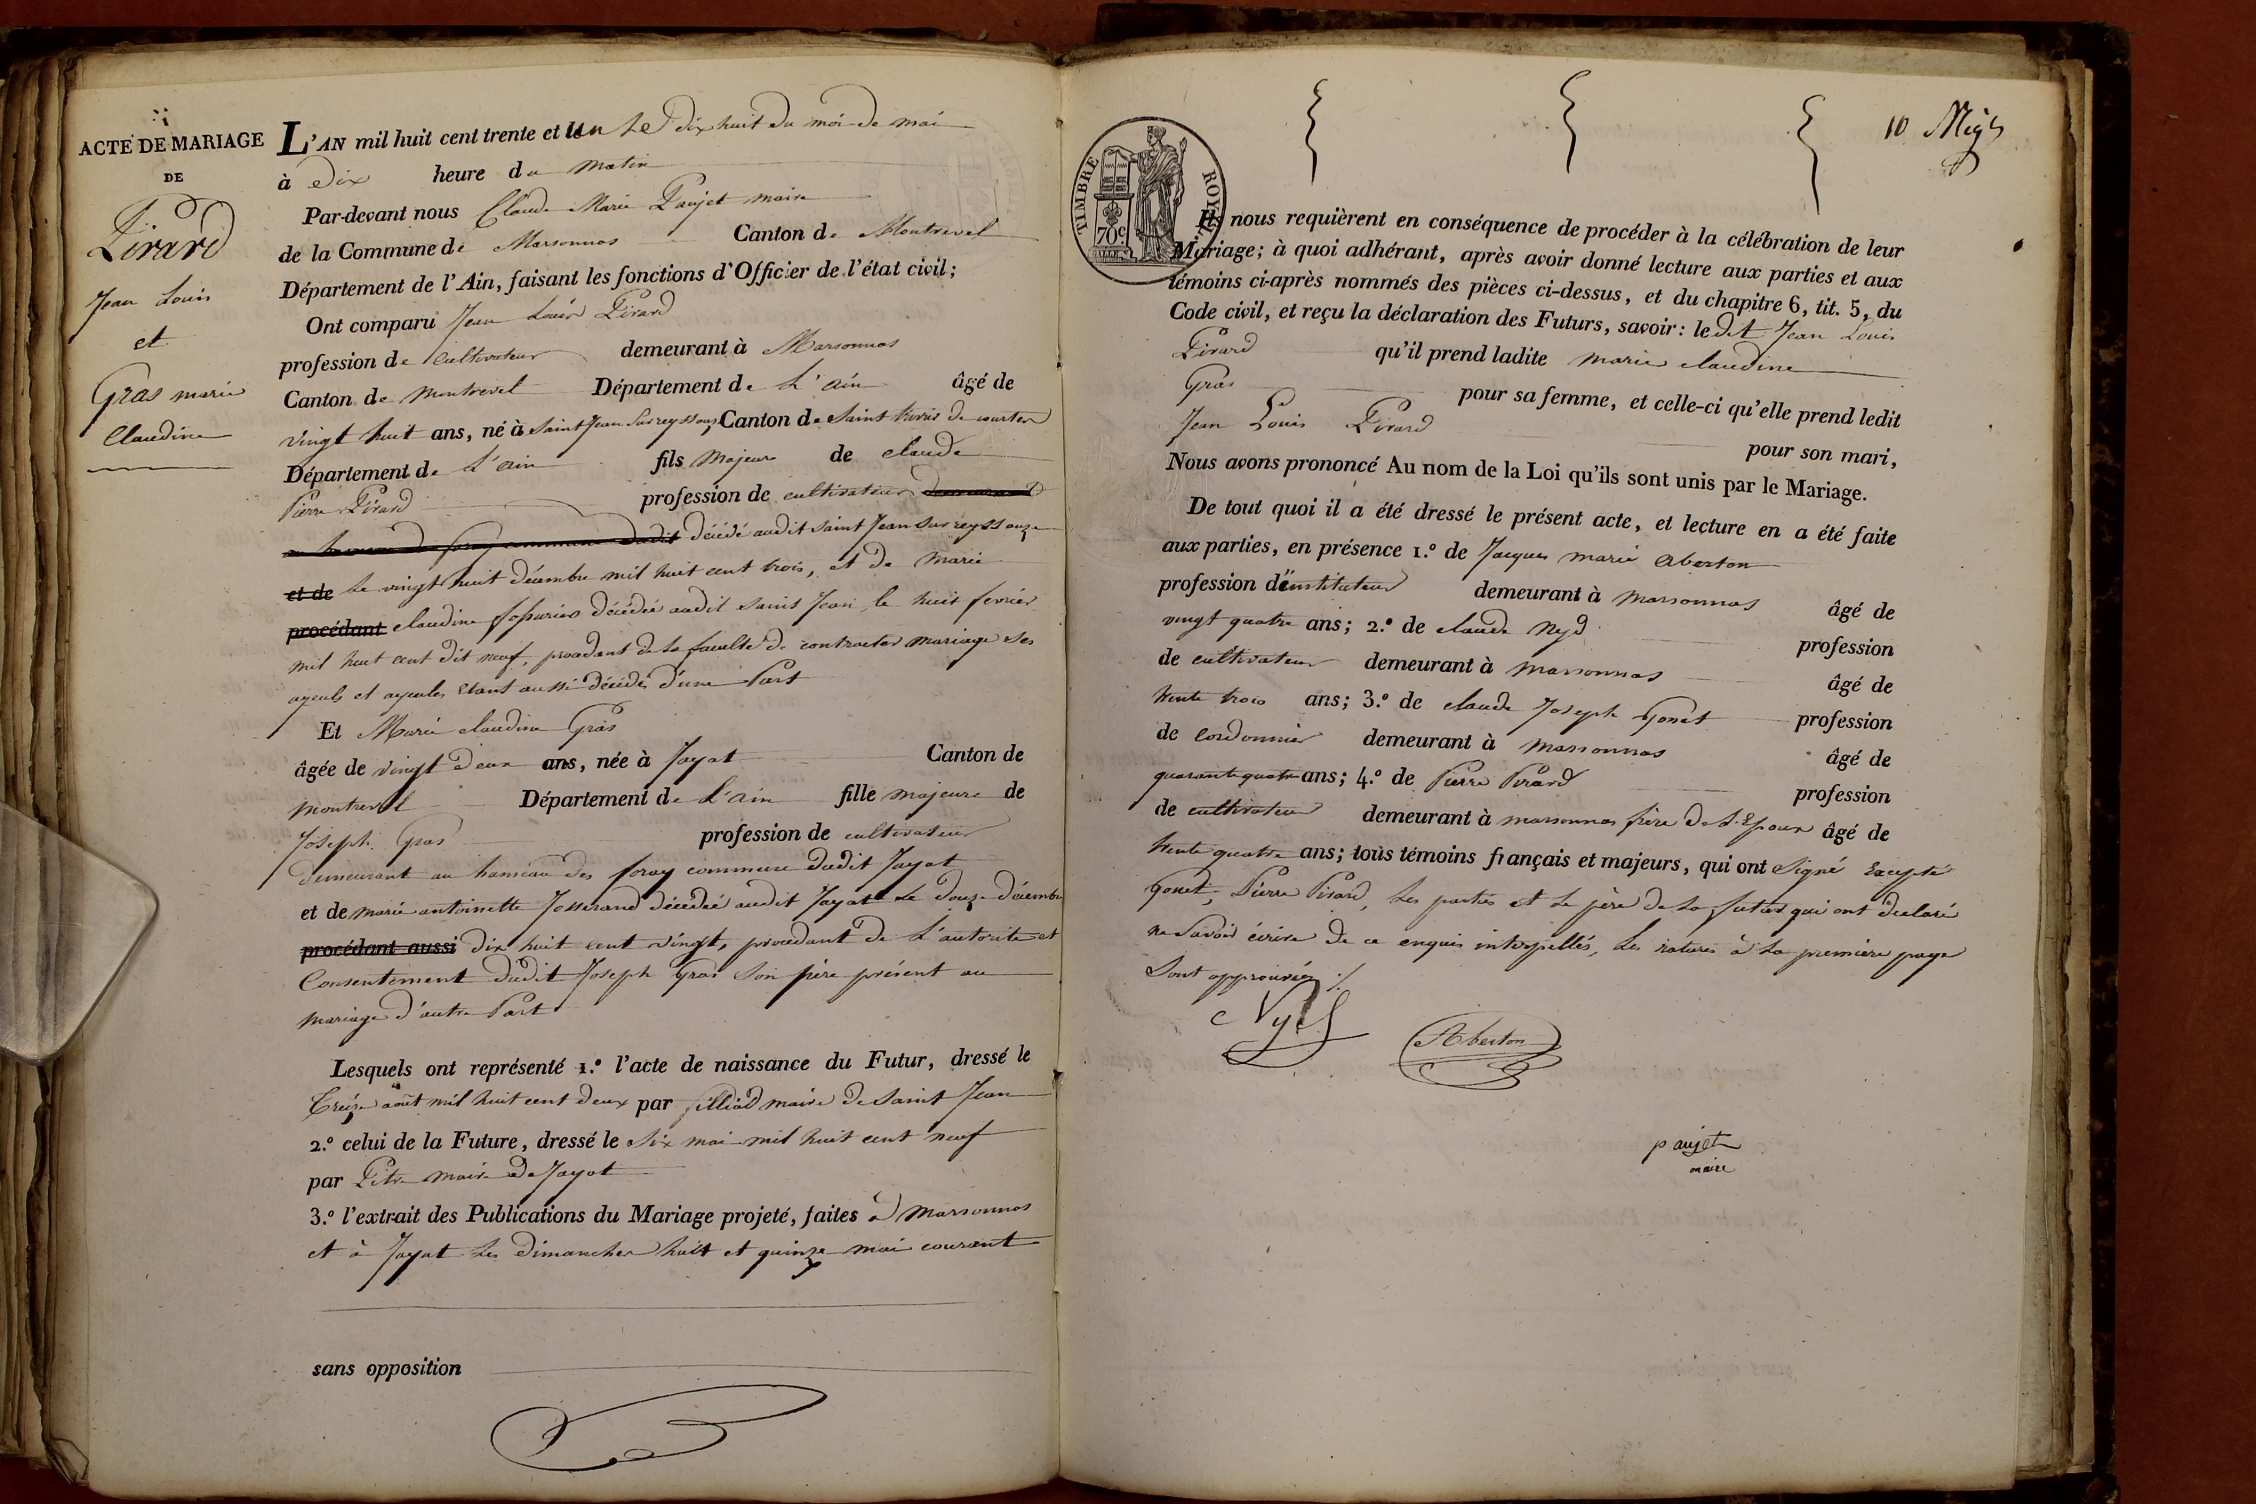 ACTE DE MARIAGE
DE
Pirard
Jean Louis
et
Gras marie
Claudine
L'AN mil huit cent trente et un le dix huit du moi de mai
à Dix heure du matin
Par-devant nous Claude Marie Paujet maire
de la Commune de Marsonnas Canton de Montrevel
Département de l'Ain, faisant les fonctions d'Officier de l'état civil;
Ont comparu Jean Louis Pirard
profession de cultivateur demeurant à Marsonnas
Canton de Montrevel Département de L'ain âgé de
vingt huit ans, né à Saint Jean Sur reyssouze Canton de Saint trivis de courtes
Département de L'ain fils Majeur de claude
Pierre Pirard profession de cultivateur demeurant
décédé audit Saint Jean sur reyssouze
et de le vingt huit décembre mil huit cent trois, et de Marie
procédant claudine décédée audit Saint Jean le huit fevrier
mil huit cent dit neuf, procédant de la faculté de contracter mariage ses
ayeuls et ayeules étant aussi décédés d'une Part
Et Marie claudine Gras
âgée de vingt deux ans, née à Jayat Canton de
montrevel Département de L'ain fille majeure de
Joseph Gras profession de cultivateur
demeurant au hameau des foray commune dudit Jayat
et de marie antoinette Josserand décédée audit Jayat le douze décembre
procédant aussi dix huit cent vingt, procedant de L'autorité et
Consentement dudit Joseph Gras Son père présent au
mariage d'autre Part
Lesquels ont représenté 1.° l'acte de naissance du Futur, dressé le
Treize août mil huit cent deux par filliod maire de Saint Jean
2.° celui de la Future, dressé le Six mai mil huit cent neuf
par Pitre maire de Jayat
3.° l'extrait des Publications du Mariage projeté, faites à Marsonnas
et à Jayat Les dimanches huit et quinze mai courant
sans opposition
10
TIMBRE ROYAL
70c
Ils nous requièrent en conséquence de procéder à la célébration de leur
Mariage; à quoi adhérant, après avoir donné lecture aux parties et aux
témoins ci-après nommés des pièces ci-dessus, et du chapitre 6, tit. 5, du
Code civil, et reçu la déclaration des Futurs, savoir: le dit Jean Louis
Pirard qu'il prend ladite marie claudine
Gras pour sa femme, et celle-ci qu'elle prend ledit
Jean Louis Pirard pour son mari,
Nous avons prononcé Au nom de la Loi qu'ils sont unis par le Mariage.
De tout quoi il a été dressé le présent acte, et lecture en a été faite
aux parties, en présence 1.° de Jacques marie Aberton
profession d'instituteur demeurant à Marsonnas âgé de
vingt quatre ans; 2.° de claude Nyd profession
de cultivateur demeurant à Marsonnas âgé de
trente trois ans; 3.° de claude Joseph Gonet profession
de Cordonnier demeurant à Marsonnas âgé de
quarante quatre ans; 4.° de Pierre Pirard profession
de cultivateur demeurant à marsonnas frère de L'Epoux âgé de
trente quatre ans; tous témoins français et majeurs, qui ont Signé Excepté
Gonet, Pierre Pirard, les parties et le père de la future qui ont declaré
ne Savoir écrire de ce enquis interpellés, Les ratures à la première page
Sont approuvées ./.
Nyd
Aberton
paujet
maire